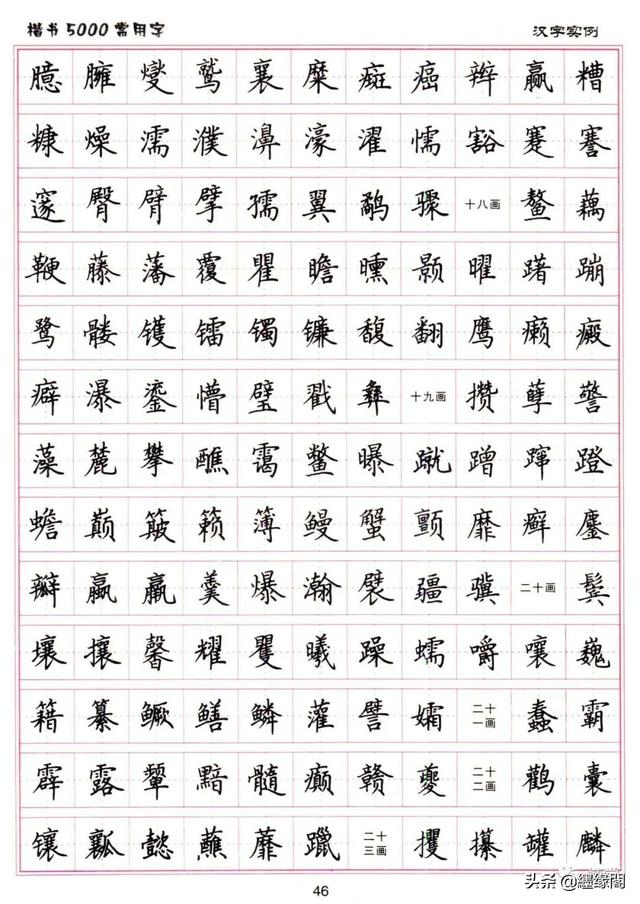 楷书5000常用字 汉字实例
臆 臃 燮 鹫 襄 糜 癍 癌 辫 赢 糟
糠 燥 濡 濮 濞 濠 濯 懦 豁 蹇 謇
邃 臀 臂 擘 孺 翼 鹬 骤 十八画 鳌 藕
鞭 藤 藩 覆 瞿 瞻 曛 颢 曜 躇 蹦
鹭 髅 镬 镭 镯 镰 馥 翻 鹰 癞 癜
癖 瀑 鎏 懵 璧 戳 彝 十九画 攒 孽 警
藻 麓 攀 醮 霭 鳖 曝 蹴 蹭 蹿 蹬
蟾 巅 簸 籁 簿 鳗 蟹 颤 靡 癣 鏖
瓣 嬴 羸 羹 爆 瀚 襞 疆 骥 二十画 鬓
壤 攘 馨 耀 矍 曦 躁 蠕 嚼 嚷 巍
籍 纂 鳜 鳝 鳞 灌 譬 孀 二十一画 蠢 霸
霹 露 颦 黯 髓 癫 赣 夔 二十二画 鹳 囊
镶 瓤 懿 蘸 蘼 躐 二十三画 攫 攥 罐 麟
46
头条 @繾缘閣